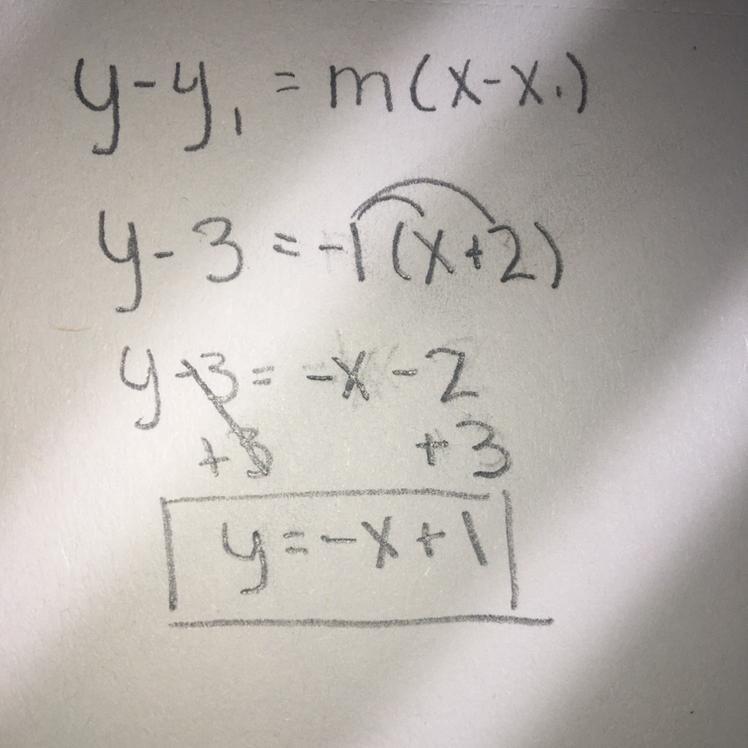 y-y₁ = m(x-x₁)
y-3 = -1(x+2)
y-3 = -x-2
+3 +3
y=-x+1